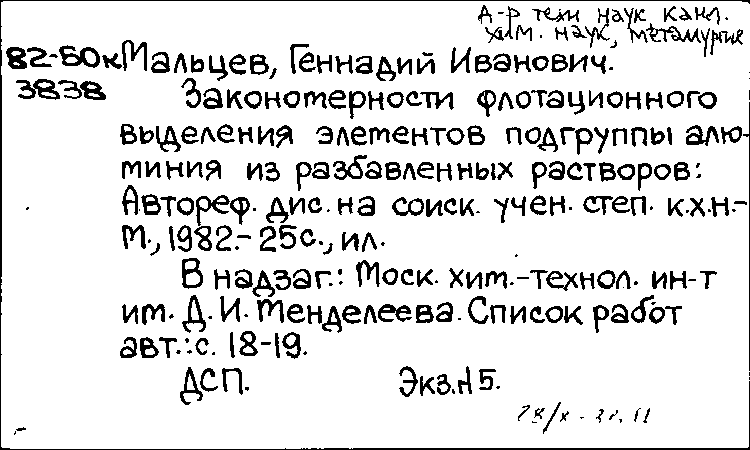 д-р техн наук, канд.
хим. наук, металлургия
82-50к Мальцев, Геннадий Иванович.
3838 Закономерности флотационного
выделения элементов подгруппы алю-
миния из разбавленных растворов:
Автореф. дис. на соиск. учен. степ. к.х.н.-
М., 1982.- 25с., ил.
В надзаг.: Моск. хим.-технол. ин-т
им. Д. И. Менделеева. Список работ
авт.: с. 18-19.
ДСП. Экз.№5.